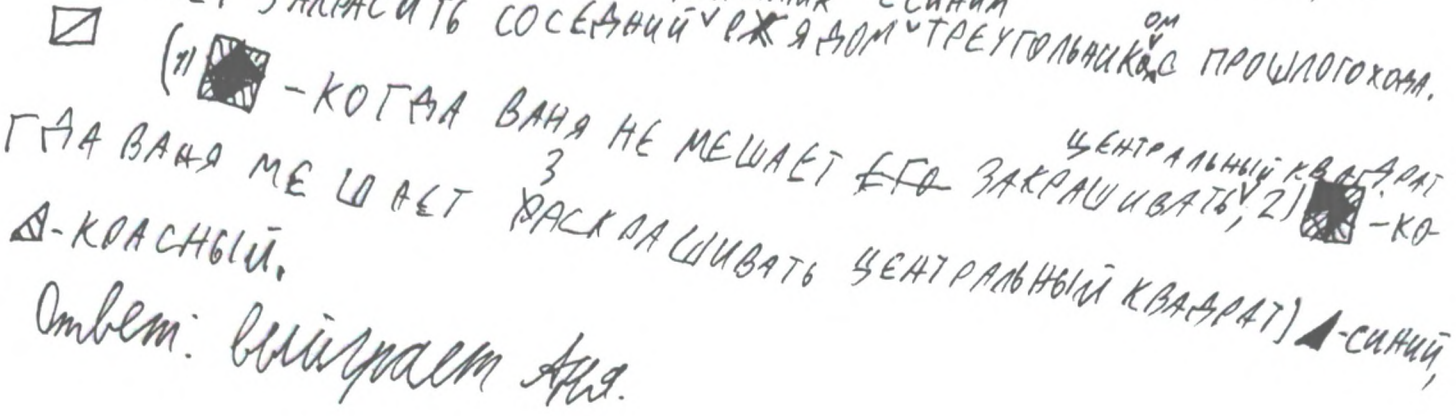 ЗАКРАСИТЬ СОСЕДНИЙ РЯДОМ ТРЕУГОЛЬНИКОМ С ПРОШЛОГО ХОДА.
(1) - КОГДА ВАНЯ НЕ МЕШАЕТ ЕГО ЗАКРАШИВАТЬ ЦЕНТРАЛЬНЫЙ КВАДРАТ; 2) - КО-
ГДА ВАНЯ МЕШАЕТ ЗАКРАШИВАТЬ ЦЕНТРАЛЬНЫЙ КВАДРАТ) - СИНИЙ,
- КРАСНЫЙ.
Ответ: выйграет Аня.